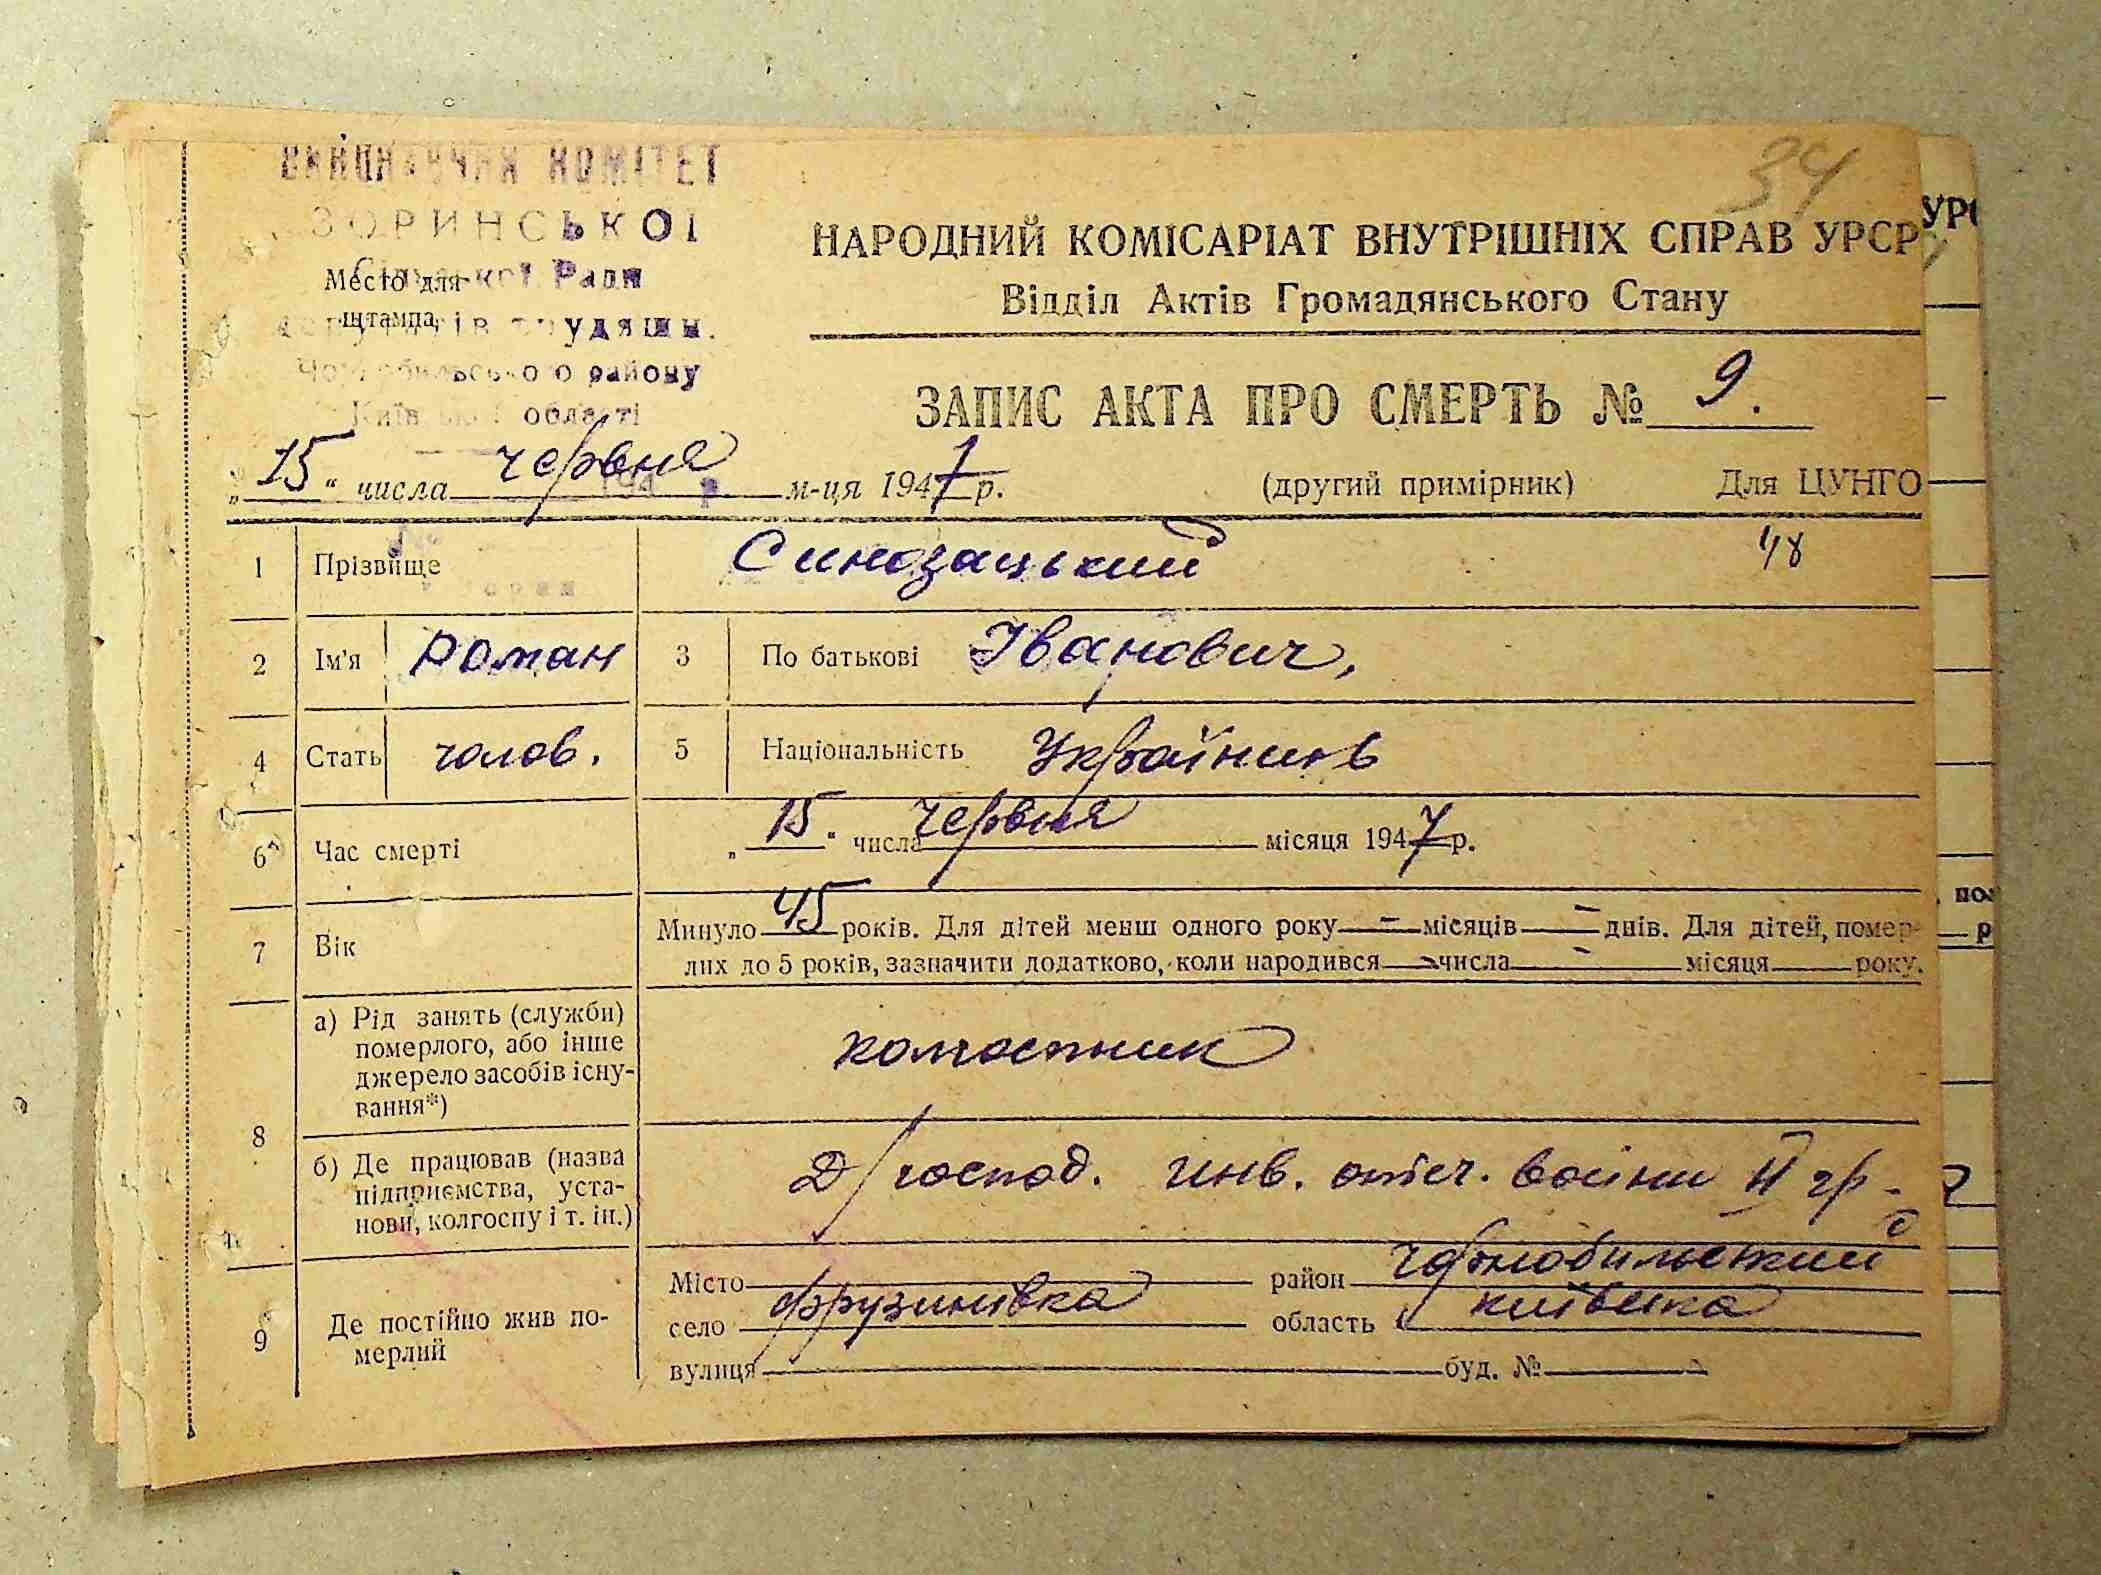 34
ВИКОНАВЧИЙ КОМІТЕТ
ЗОРИНСЬКОІ
Сільської Ради
Место для
штампа
депутатів трудящих.
Чорнобильського району
Київської області
194 р.
НАРОДНИЙ КОМІСАРІАТ ВНУТРІШНІХ СПРАВ УРСР
Відділ Актів Громадянського Стану
ЗАПИС АКТА ПРО СМЕРТЬ № 9.
„15“ числа червня м-ця 1947 р.
(другий примірник) Для ЦУНГО
1 Прізвище Синозацький 48
2 Ім'я Роман 3 По батькові Іванович,
4 Стать чолов. 5 Національність Українинь
6 Час смерті „15.“ числа червня місяця 1947 р.
7 Вік Минуло 45 років. Для дітей менш одного року — місяців — днів. Для дітей, помер-
лих до 5 років, зазначити додатково, коли народився — числа — місяця — року.
8 а) Рід занять (служби)
померлого, або інше
джерело засобів існу-
вання*)
колгоспник
б) Де працював (назва
підприємства, уста-
нови, колгоспу і т. ін.)
Д/господ. инв. отеч. войни II гр.
9 Де постійно жив по-
мерлий
Місто район Чорнобильський
село Фрузинівка область київська
вулиця буд. №
УРС
, пом
р